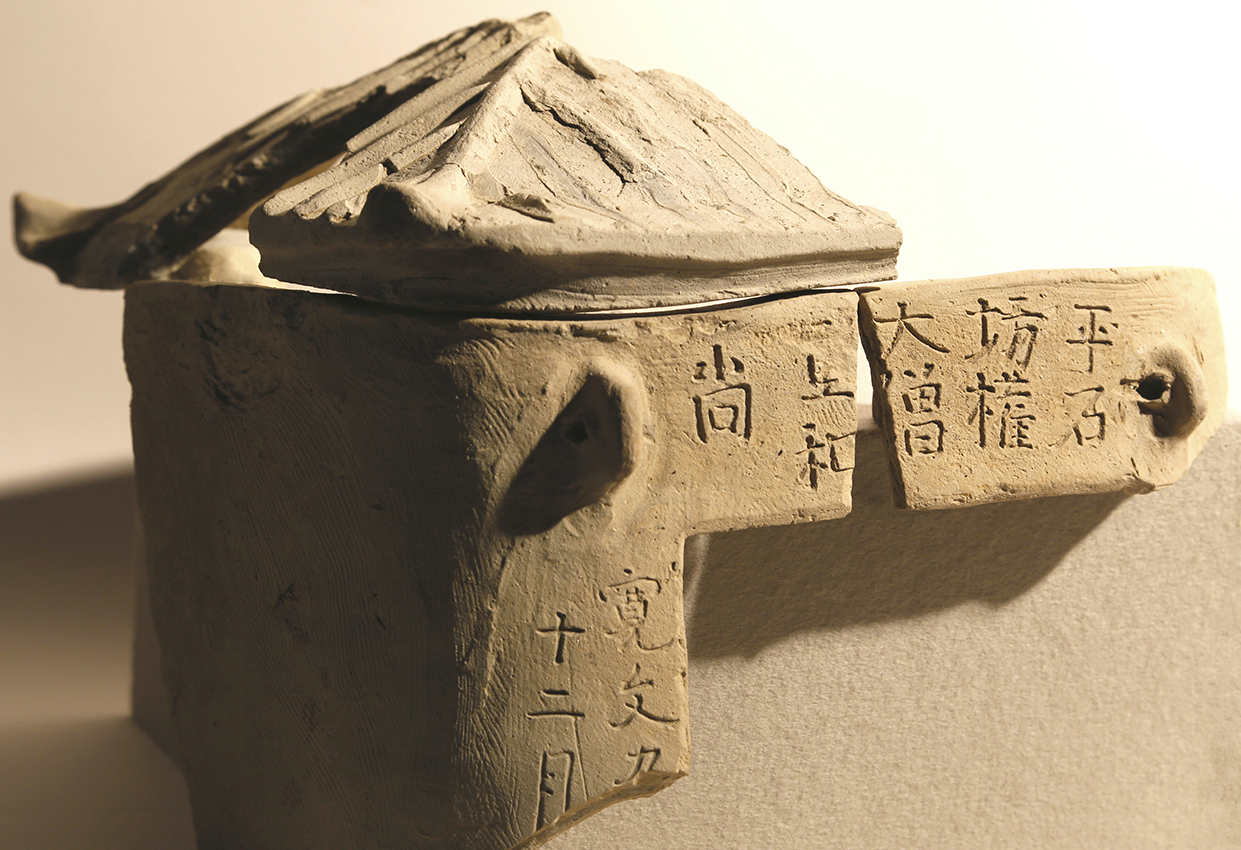 平石
坊權
大僧
上和
尚
寛文九
十二月